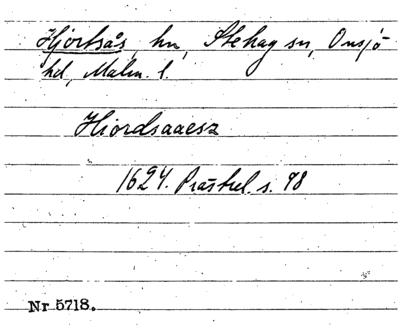 Hjortsås, hn, Stehag sn, Onsjö
hd, Malm. l.
Hiordsaaesz
1624. Prästrel. s. 98
Nr 5718.